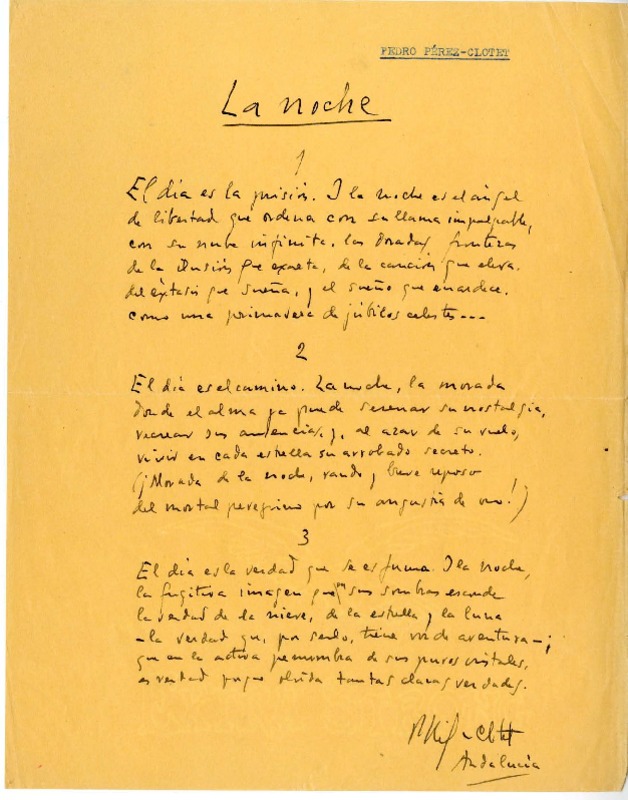 PEDRO PÉREZ-CLOTET
La noche
1
El día es la prisión. I la noche es el ángel
de libertad que ordena con su llama impalpable,
con su nube infinita, las doradas fronteras
de la ilusión que exalta, de la canción que eleva.
del éxtasis que sueña, y el sueño que enardece.
como una primavera de júbilos celestes---
2
El día es el camino. La noche, la morada
donde el alma ya puede serenar su nostalgia,
recrear sus ausencias, y, al azar de su vuelo,
vivir en cada estrella su arrobado secreto.
(¡Morada de la noche, raudo y breve reposo
del mortal peregrino por su angustia de oro!)
3
El día es la verdad que se esfuma. I la noche,
la fugitiva imagen que en sus sombras esconde
la verdad de la nieve, de la estrella y la luna
-la verdad que, por serlo, tiene voz de aventura-;
que en la activa penumbra de sus puros cristales,
es verdad porque olvida tantas claras verdades.
Andalucía